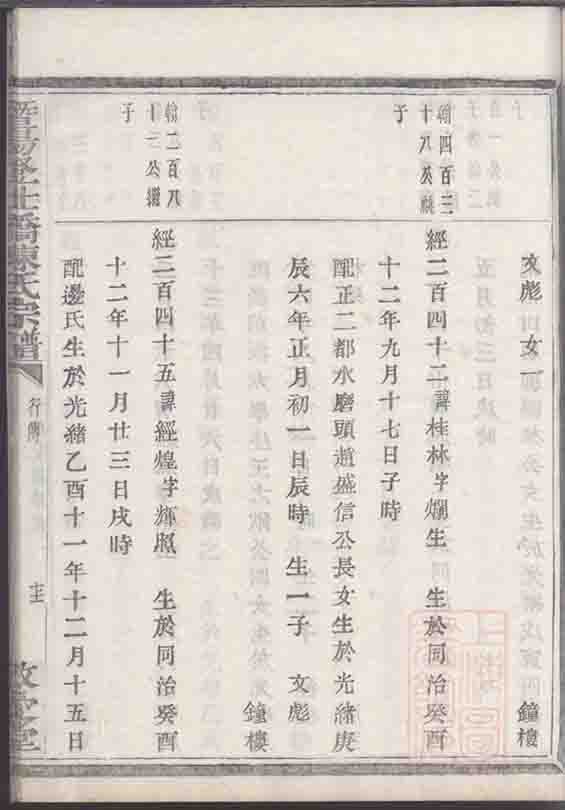 文彪 女一 鐘樓
翰四百三
十八公繼
子
經二百四十二諱桂林字燗生 生於同治癸酉
十二年九月十七日子時
配正二都水磨頭趙盛信公長女生於光緒庚
辰六年正月初一日辰時 生一子 文彪
鐘樓
翰二百八
十一公繼
子
經二百四十五諱經煌字輝照 生於同治癸酉
十二年十一月廿三日戌時
配邊氏生於光緒乙酉十一年十二月十五日
暨陽登仕橋陳氏宗譜
行傳